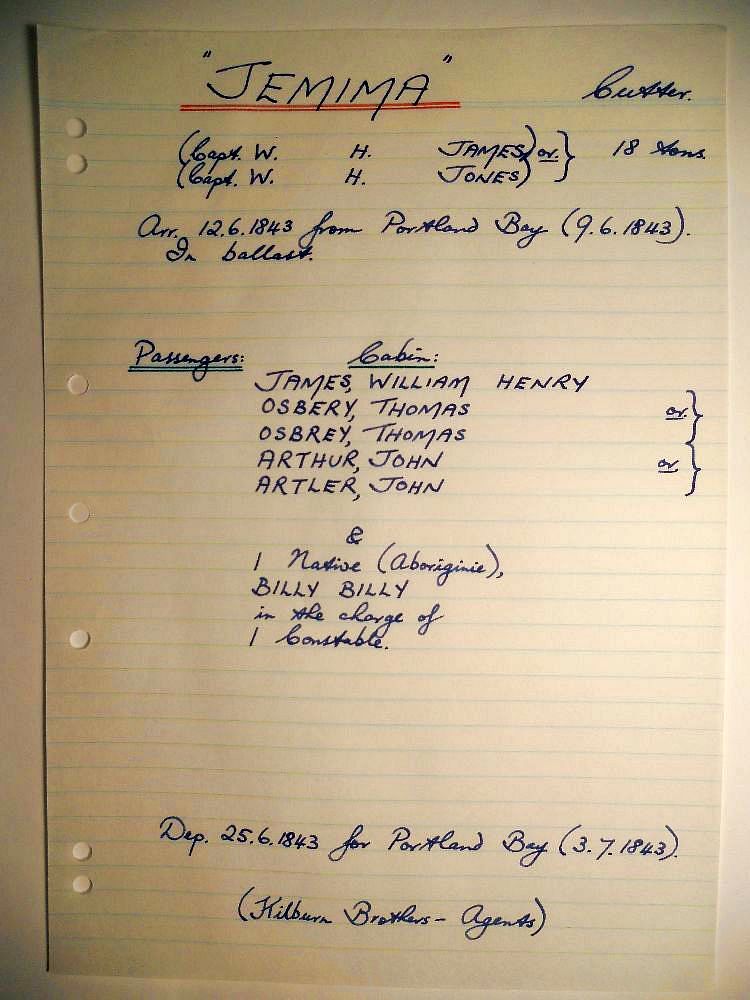 "JEMIMA" Cutter.
(Capt. W. H. JAMES) or } 18 tons.
(Capt. W. H. JONES)
Arr. 12.6.1843 from Portland Bay (9.6.1843).
In ballast.
Passengers: Cabin:
JAMES, WILLIAM HENRY
OSBERY, THOMAS or }
OSBREY, THOMAS
ARTHUR, JOHN or }
ARTLER, JOHN
&
1 Native (Aboriginie),
BILLY BILLY
in the charge of
1 Constable.
Dep. 25.6.1843 for Portland Bay (3.7.1843).
(Kilburn Brothers - Agents)